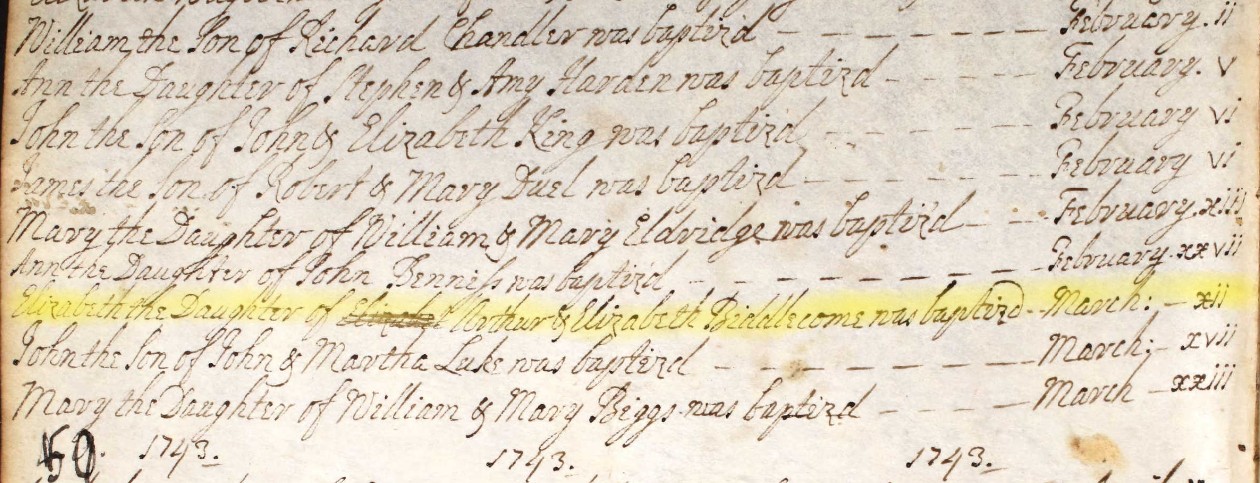 William the Son of Richard Chandler was baptiz'd - - - - - - - February. ii
Ann the Daughter of Stephen & Amy Harden was baptiz'd - - - - February. v
John the Son of John & Elizabeth King was baptiz'd - - - - - - February vi
James the Son of Robert & Mary Duel was baptiz'd - - - - - - February vi
Mary the Daughter of William & Mary Eldridge was baptiz'd - - February. xiii
Ann the Daughter of John Benness was baptiz'd - - - - - - - February. xxvii
Elizabeth the Daughter of Arthur & Elizabeth Biddlecome was baptiz'd - - March: - xii
John the Son of John & Martha Luke was baptiz'd - - - - - - - March; - xvii
Mary the Daughter of William & Mary Biggs was baptiz'd - - - - March - xxiii
50. 1743. 1743. 1743.